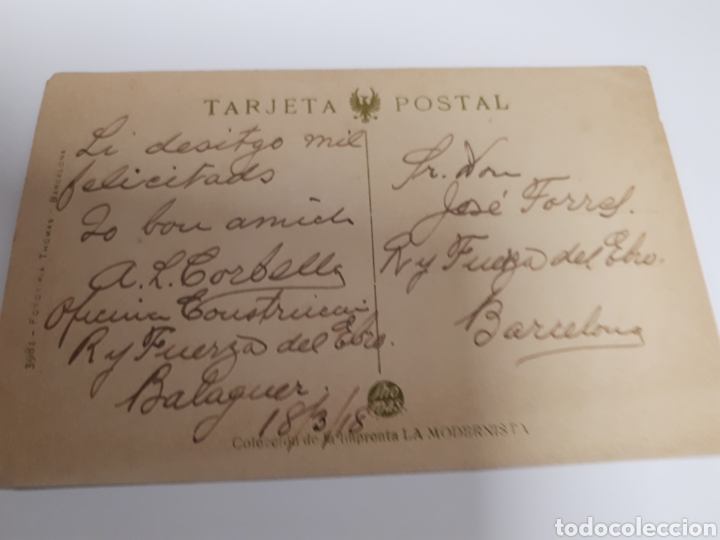 TARJETA POSTAL
Li desitgo mil
felicitads
Lo bon amich
A. L. Corbella
Oficina Construcció
R y Fuerza del Ebro.
Balaguer.
18/3/18
Sr. Don
José Torres.
R y Fuerza del Ebro.
Barcelona
3981 - FOTOTIPIA THOMAS - BARCELONA
Colección de la Imprenta LA MODERNISTA
todocoleccion